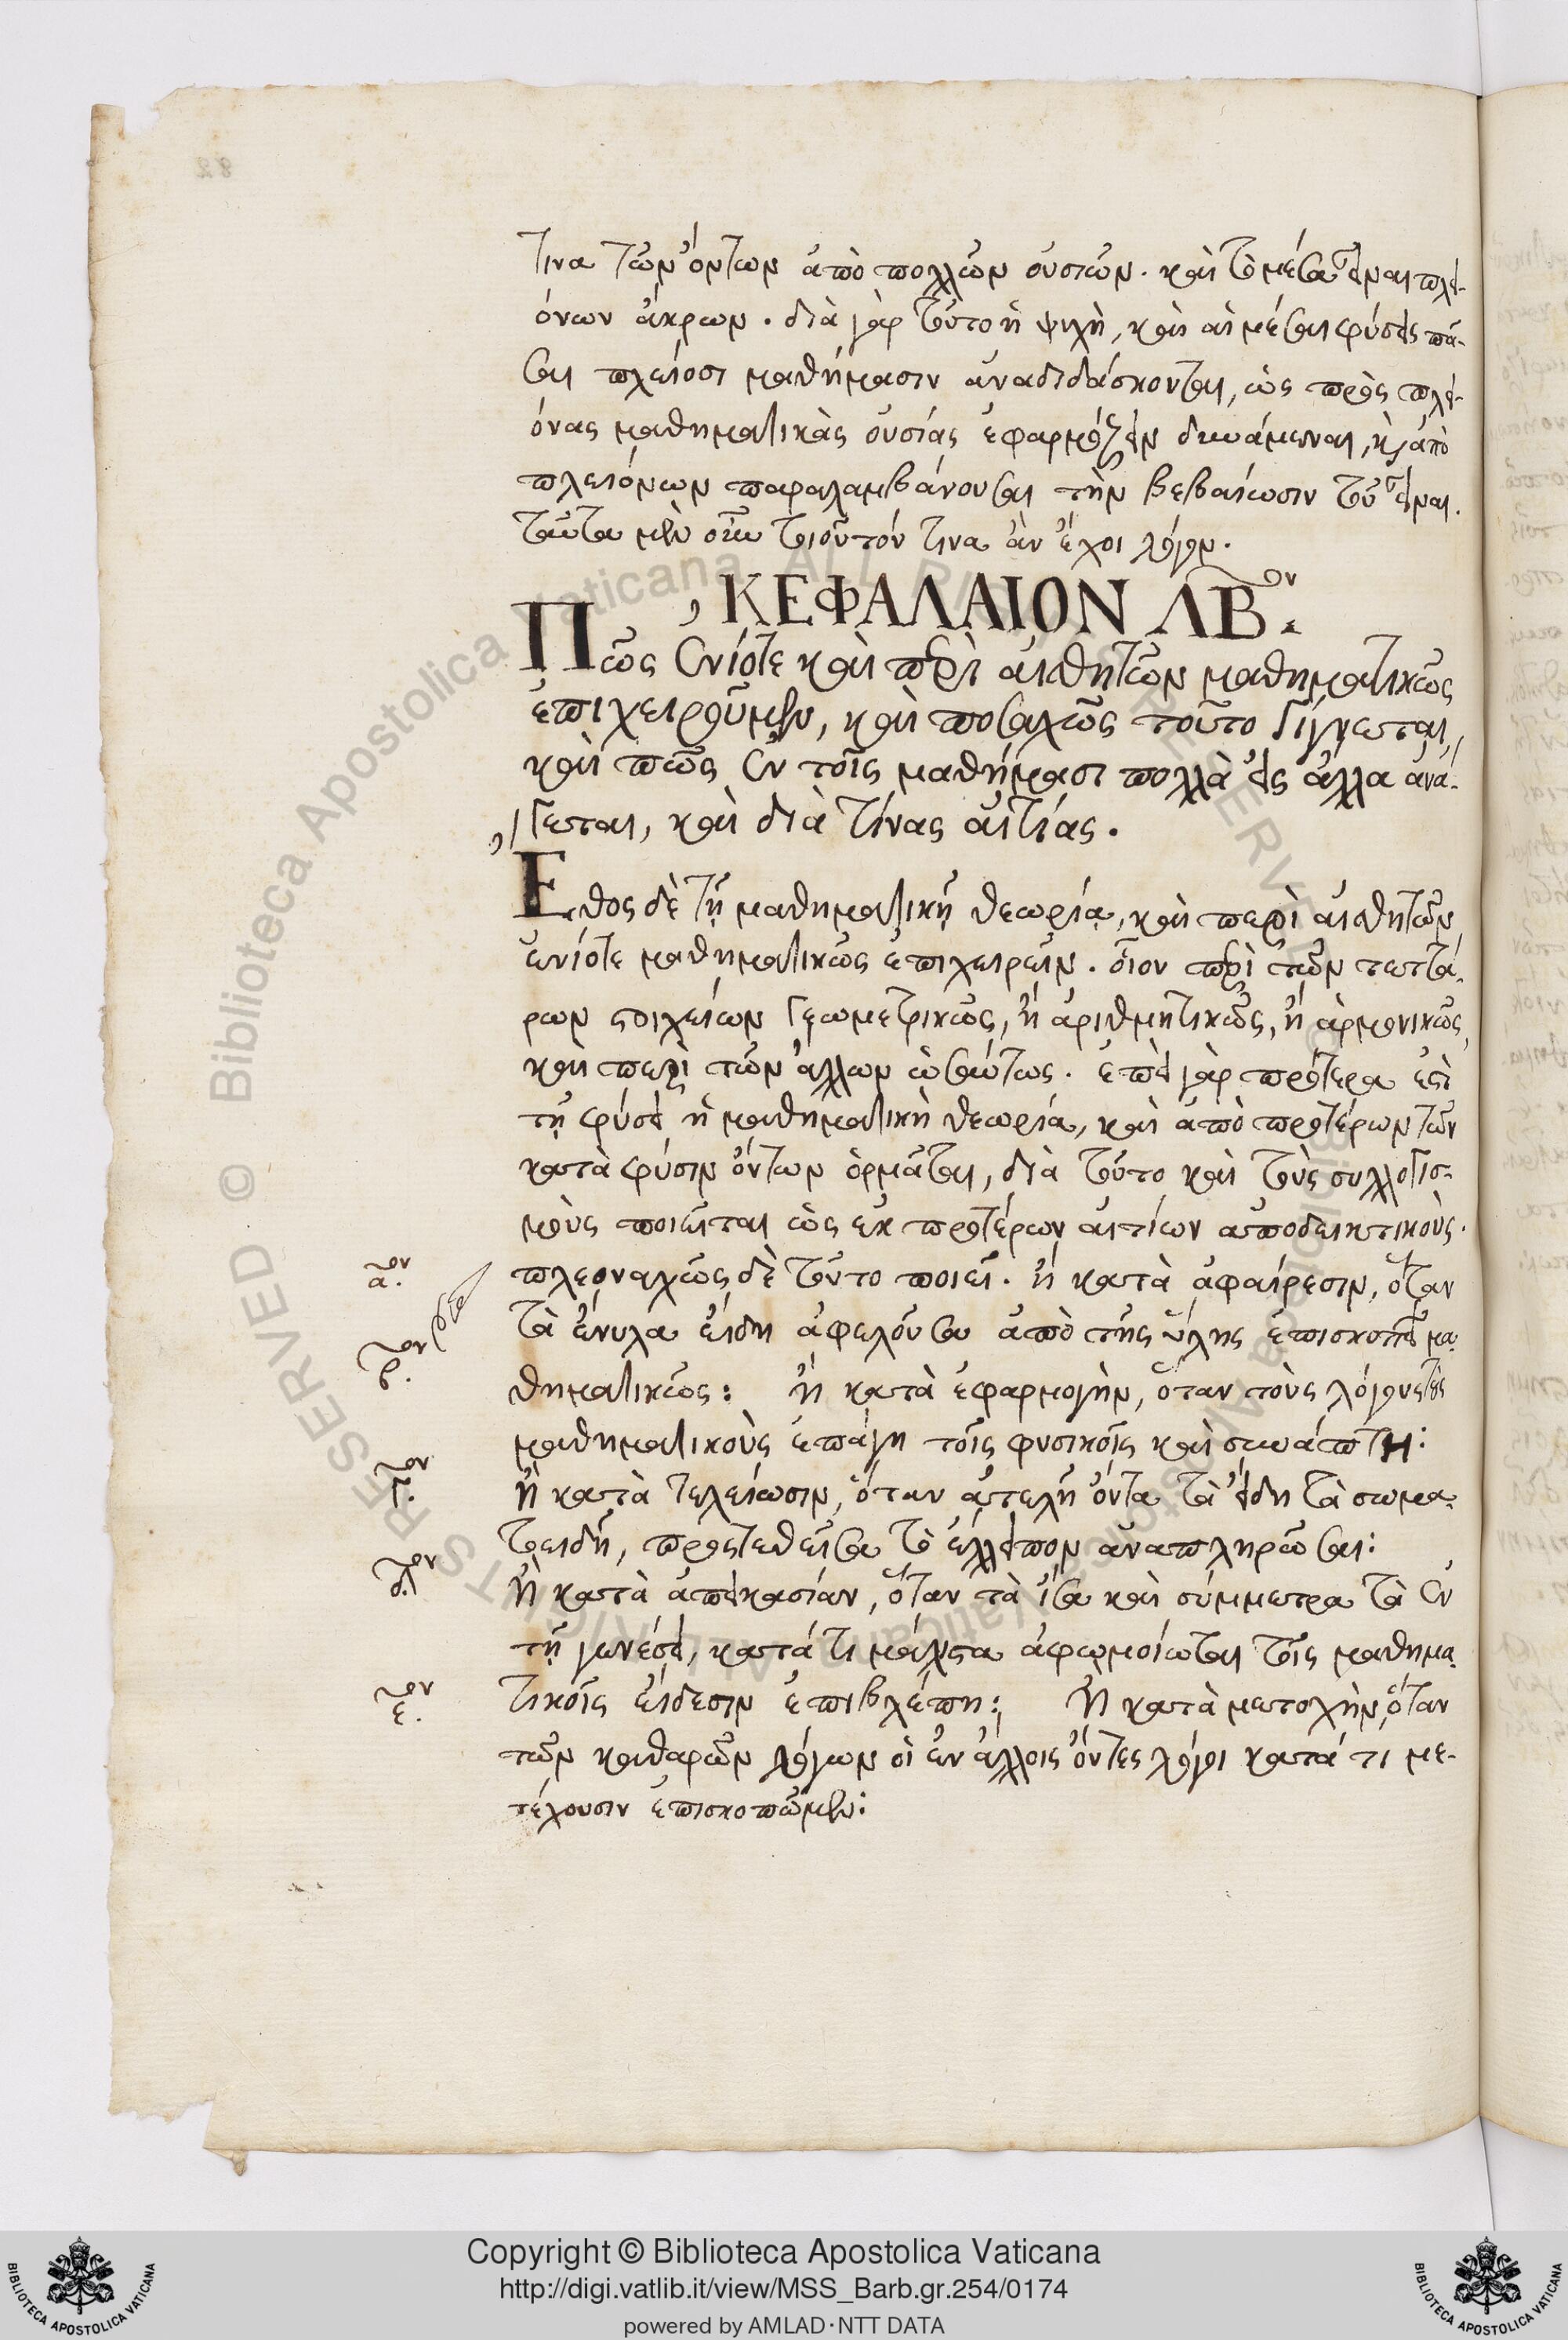 τινα τῶν ὄντων ἀπὸ πολλῶν οὐσιῶν. καὶ τὸ μέσα εἶναι πλει-
όνων ἄκρων. διὰ γὰρ τοῦτο ἡ ψυχὴ, καὶ αἱ μέσαι φύσεις πᾶ-
σαι πλείοσι μαθήμασιν ἀναδιδάσκονται, ὡς πρὸς πλεί-
όνας μαθηματικὰς οὐσίας ἐφαρμόζειν δυνάμεναι, καὶ ἀπὸ
πλειόνων παραλαμβάνουσαι τὴν βεβαίωσιν τοῦ εἶναι.
ταῦτα μὲν οὖν τοιοῦτόν τινα ἂν ἔχοι λόγον.
ΚΕΦΑΛΑΙΟΝ ΛΒον.
Πῶς ἐνίοτε καὶ περὶ αἰσθητῶν μαθηματικῶς
ἐπιχειροῦμεν, καὶ ποσαχῶς τοῦτο γίγνεται,
καὶ πῶς ἐν τοῖς μαθήμασι πολλὰ εἰς ἄλλα ἀνά-
γεται, καὶ διὰ τίνας αἰτίας.
Ἔθος δὲ τῇ μαθηματικῇ θεωρίᾳ, καὶ περὶ αἰσθητῶν
ἐνίοτε μαθηματικῶς ἐπιχειρεῖν. οἷον περὶ τῶν τεττά-
ρων στοιχείων γεωμετρικῶς, ἢ ἀριθμητικῶς, ἢ ἁρμονικῶς,
καὶ περὶ τῶν ἄλλων ὡσαύτως. ἐπεὶ γὰρ πρότερα ἐστὶ
τῇ φύσει ἡ μαθηματικὴ θεωρία, καὶ ἀπὸ προτέρων τῶν
κατὰ φύσιν ὄντων ὁρμᾶται, διὰ τοῦτο καὶ τοὺς συλλογισ-
μοὺς ποιεῖται ὡς ἐκ προτέρων αἰτίων ἀποδεικτικοὺς.
αον. πλεοναχῶς δὲ τοῦτο ποιεῖ. ἢ κατὰ ἀφαίρεσιν, ὅταν
τὰ ἔνυλα εἴδη ἀφελοῦσα ἀπὸ τῆς ὕλης ἐπισκοπεῖ μα-
βον. θηματικῶς: ἢ κατὰ ἐφαρμογὴν, ὅταν τοὺς λόγους τοὺς
μαθηματικοὺς ἐπάγη τοῖς φυσικοῖς καὶ συνάπτη:
γον. ἢ κατὰ τελείωσιν, ὅταν ἀτελῆ ὄντα τὰ εἴδη τὰ σωμα-
τοειδῆ, προστεθεῖσα τὸ ἐλλεῖπον ἀναπληρῶσαι:
δον. ἢ κατὰ ἀπεικασίαν, ὅταν τὰ ἴσα καὶ σύμμετρα τὰ ἐν
τῇ γενέσει, κατά τι μάλιστα ἀφωμοίωται τοῖς μαθημα-
εον. τικοῖς εἴδεσιν ἐπιβλέπη: ἢ κατὰ μετοχὴν, ὅταν
τῶν καθαρῶν λόγων οἱ ἐν ἄλλοις ὄντες λόγοι κατά τι με-
τέχουσιν ἐπισκοπῶμεν:
Biblioteca Apostolica Vaticana ALL RIGHTS RESERVED ©
Copyright © Biblioteca Apostolica Vaticana
http://digi.vatlib.it/view/MSS_Barb.gr.254/0174
powered by AMLAD·NTT DATA
BIBLIOTECA APOSTOLICA VATICANA
BIBLIOTECA APOSTOLICA VATICANA